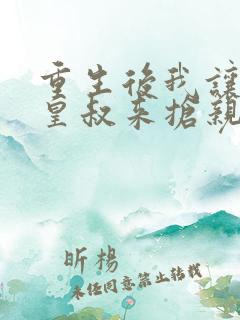 重生後我讓
皇叔來搶親
昕楊
未经同意禁止转载